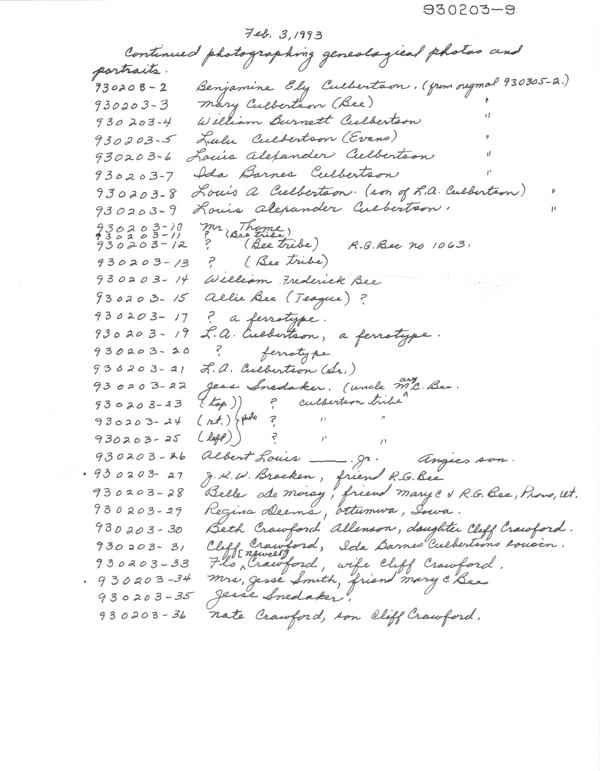 930203-9
Feb. 3, 1993
Continued photographing genealogical photos and
portraits.
930203-2 Benjamine Ely Culbertson. (from original 930305-2.)
930203-3 Mary Culbertson (Bee) "
930203-4 William Burnett Culbertson "
930203-5 Lulu Culbertson (Evans) "
930203-6 Louis Alexander Culbertson "
930203-7 Ida Barnes Culbertson "
930203-8 Louis A Culbertson. (son of L.A. Culbertson) "
930203-9 Louis Alexander Culbertson. "
930203-10 Mr. Thome
930203-11 ? (Bee tribe)
930203-12 ? (Bee tribe) R.G. Bee no 1063.
930203-13 ? (Bee tribe)
930203-14 William Frederick Bee
930203-15 Allie Bee (Teague) ?
930203-17 ? a ferrotype.
930203-19 L.A. Culbertson, a ferrotype.
930203-20 ? ferrotype
930203-21 L.A. Culbertson (Sr.)
930203-22 Jess Snedaker. (uncle Mary C. Bee.
930203-23 (top)) ? culbertson tribe
930203-24 (rt.) } photo ? " "
930203-25 (left)) ? " "
930203-26 Albert Louis ____ Jr. Angies son.
930203-27 J.R.W. Bracken, friend R.G. Bee
930203-28 Belle de Moisy, friend Mary C & R.G. Bee, Provo, Ut.
930203-29 Regina Deems, Ottumwa, Iowa.
930203-30 Beth Crawford Allenson, daughter Cliff Crawford.
930203-31 Cliff Crawford, Ida Barnes Culbertsons cousin.
930203-33 Flo Crawford, wife Cliff Crawford.
930203-34 Mrs. Jesse Smith, friend Mary C Bee
930203-35 Jesse Snedaker.
930203-36 Nate Crawford, son Cliff Crawford.